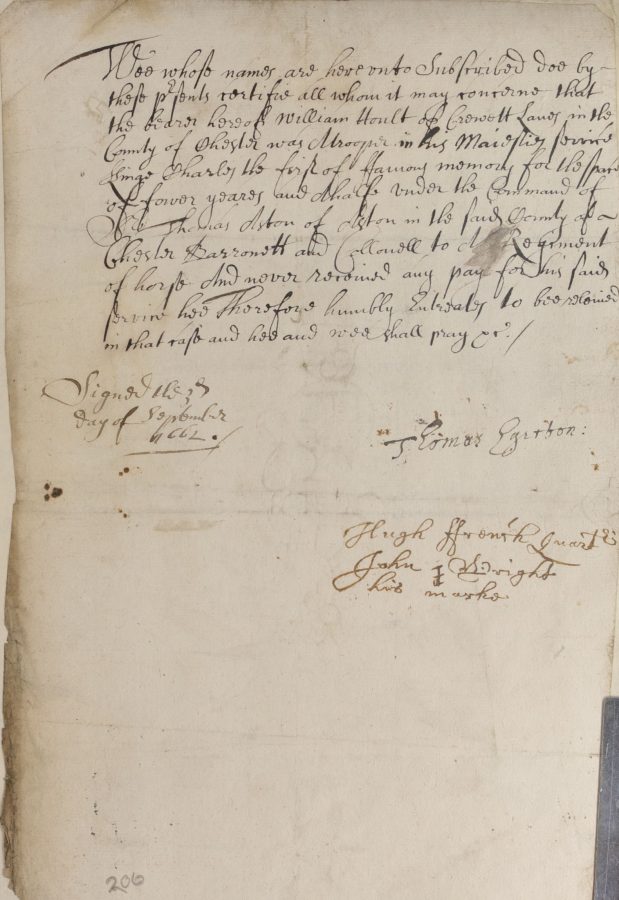 Wee whose names are hereunto Subscribed doe by
these prsents certifie all whom it may concerne that
the bearer hereof William Hoult of Crewett Lanes in the
County of Chester was A trooper in his Maiesties service
Kinge Charles the first of ffamous memory for the space
of fower yeares and A halfe under the Command of
Sr Thomas Aston of Aston in the said County of
Chester Barronett and Collonell to A Regiment
of horse And never received any pay for his said
service hee Therefore humbly Entreates to bee releived
in that case and hee and wee shall pray &c. /
Signed the 3th
day of September
1662 ./
Thomas Egerton:
Hugh ffrench Quartr
John Wright
his marke
206